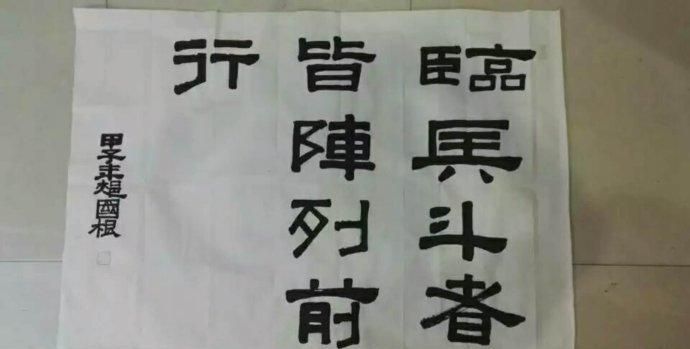 臨兵斗者
皆陣列前
行
甲子年國根